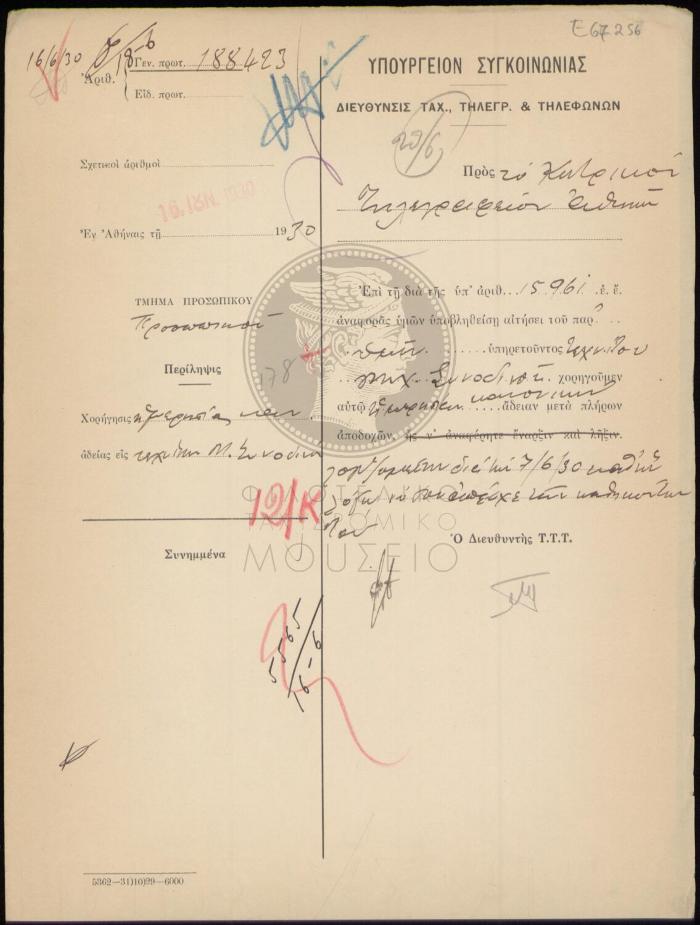 E67256
16/6/30
Ἀριθ.
Γεν. πρωτ. 188423
Εἰδ. πρωτ.
ΥΠΟΥΡΓΕΙΟΝ ΣΥΓΚΟΙΝΩΝΙΑΣ
ΔΙΕΥΘΥΝΣΙΣ ΤΑΧ., ΤΗΛΕΓΡ. & ΤΗΛΕΦΩΝΩΝ
20/6
Σχετικοὶ ἀριθμοὶ
16. ΙΟΥΝ. 1930
Ἐν Ἀθήναις τῇ 1930
Πρὸς τὸ Κεντρικὸν
Τηλεγραφεῖον Ἀθηνῶν
ΤΜΗΜΑ ΠΡΟΣΩΠΙΚΟΥ
Προσωπικοῦ
Περίληψις
178
Χορήγησις
ἀδείας εἰς τεχνίτην Μ. Συνοδινὸν
12/Κ
Συνημμένα
Ἐπὶ τῇ διὰ τῆς ὑπ' ἀριθ. 15961 ἐ. ἔ.
ἀναφορᾶς ὑμῶν ὑποβληθείσῃ αἰτήσει τοῦ παρ'
ὑμῖν ὑπηρετοῦντος τεχνίτου
Μιχ. Συνοδινοῦ χορηγοῦμεν
αὐτῷ κανονικὴν ἄδειαν μετὰ πλήρων
ἀποδοχῶν, ἧς ν' ἀναφέρητε ἔναρξιν καὶ λῆξιν.
λογιζομένην διὰ τὴν 7/6/30 καθ' ἣν
τῶν καθηκόντων
του
Ὁ Διευθυντὴς Τ.Τ.Τ.
ΦΙΛΟΤΕΛΙΚΟ
ΤΑΧΥΔΡΟΜΙΚΟ
ΜΟΥΣΕΙΟ
5565
16-6
5362—31)10)29—6000